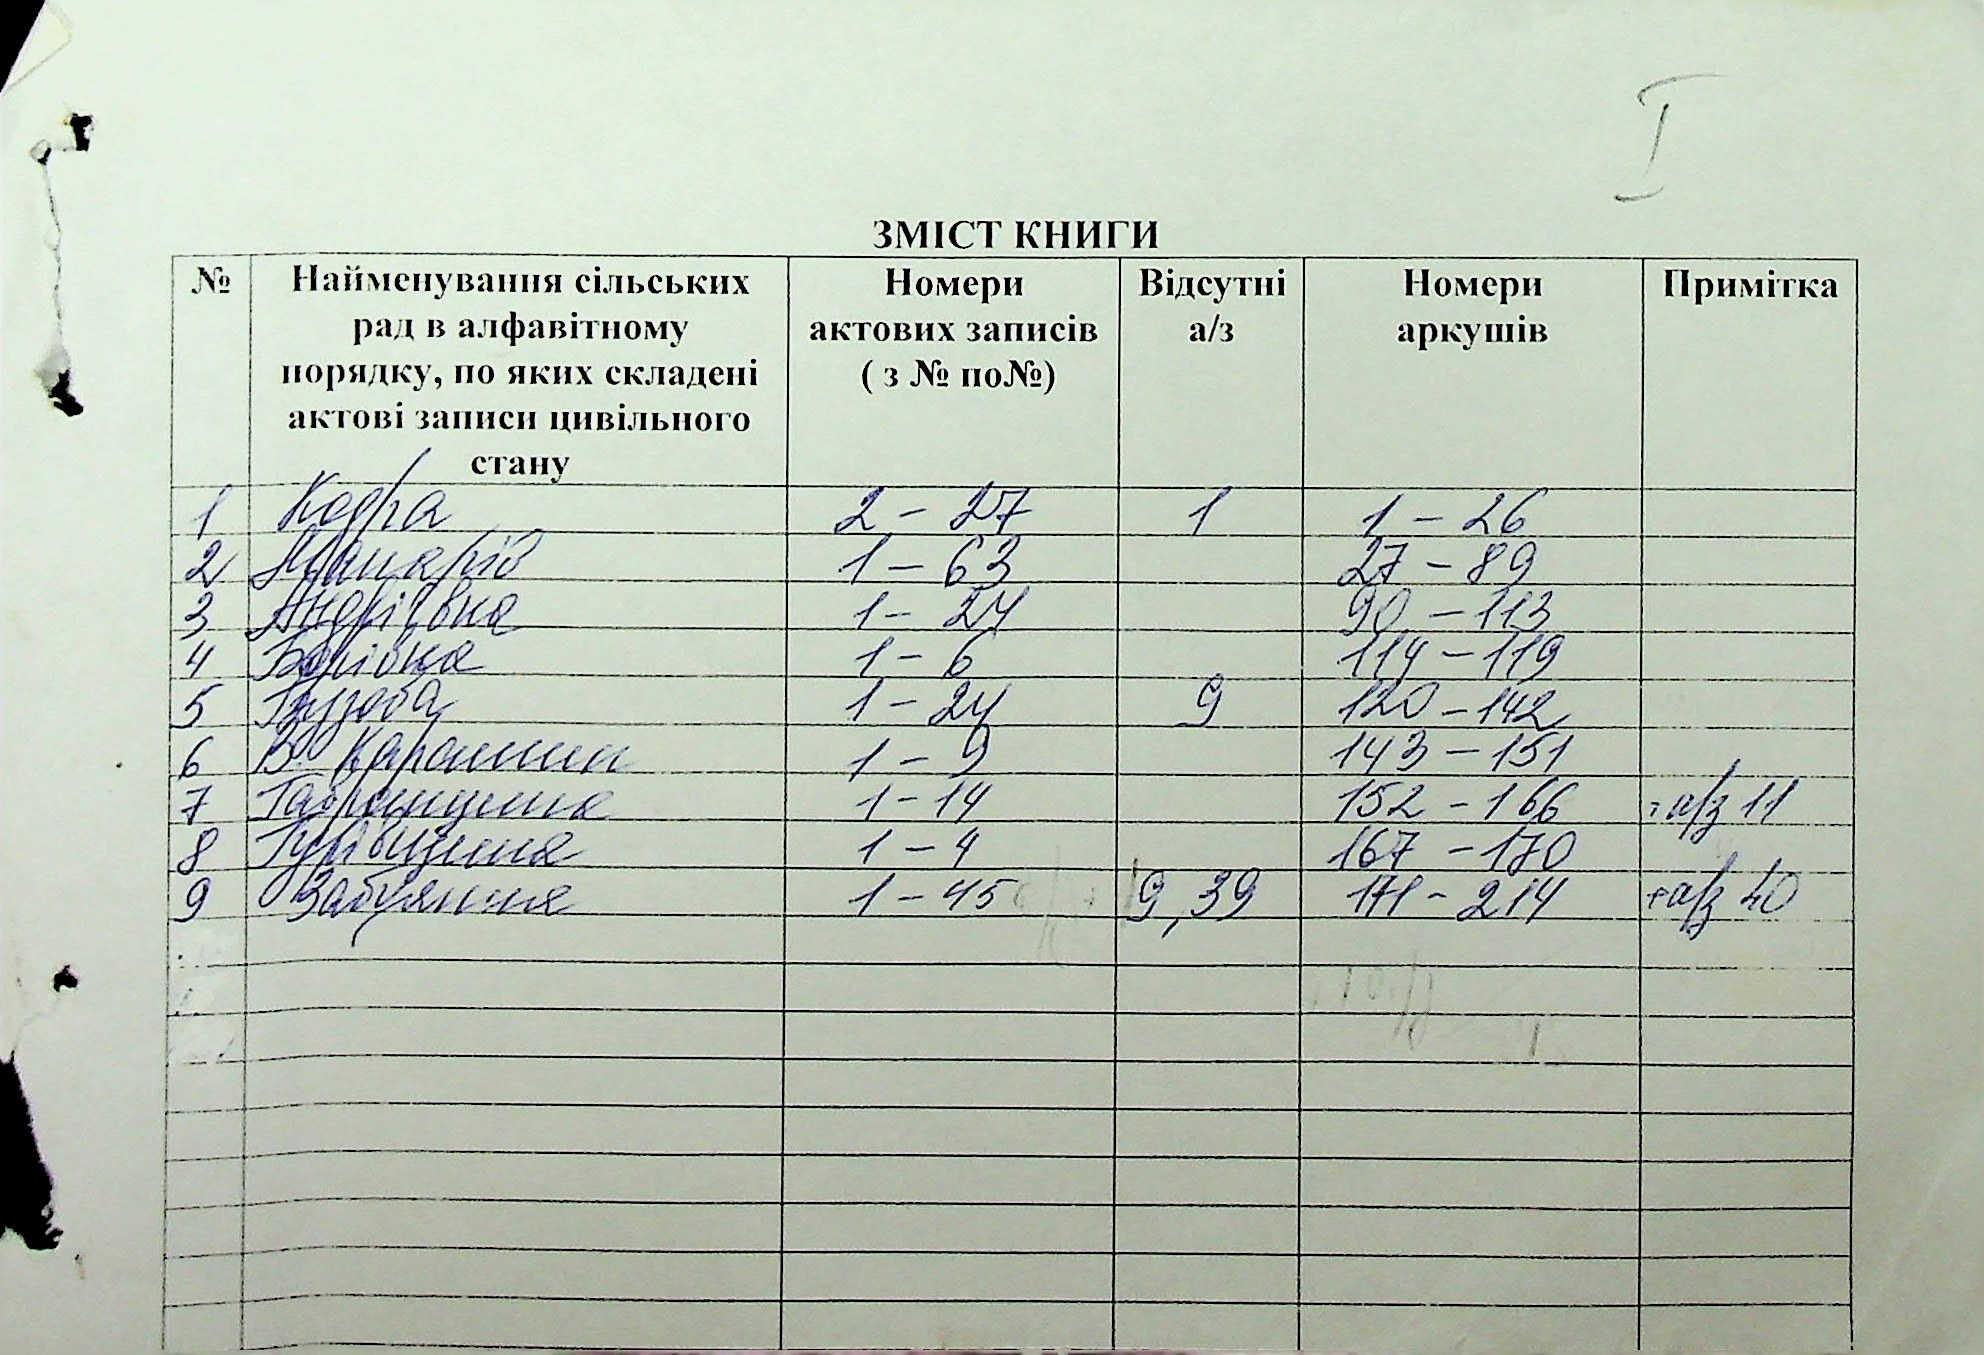 I
ЗМІСТ КНИГИ
№ Найменування сільських рад в алфавітному порядку, по яких складені актові записи цивільного стану Номери актових записів ( з № по№) Відсутні а/з Номери аркушів Примітка
1 Кодра 2 – 27 1 1 – 26
2 Макарів 1 – 63 27 – 89
3 Андріївка 1 – 24 90 – 113
4 Борівка 1 – 6 114 – 119
5 Бузова 1 – 24 9 120 – 142
6 В Карашин 1 – 9 143 – 151
7 Гавронщина 1 – 14 152 – 166 + а/з 11
8 Гурівщина 1 – 4 167 – 170
9 Забуяння 1 – 45 9, 39 171 – 214 + а/з 40